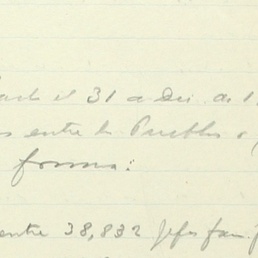 el 31 a Dic. de 1
entre los Pueblos
forma:
entre 38,832 Jefes fam.